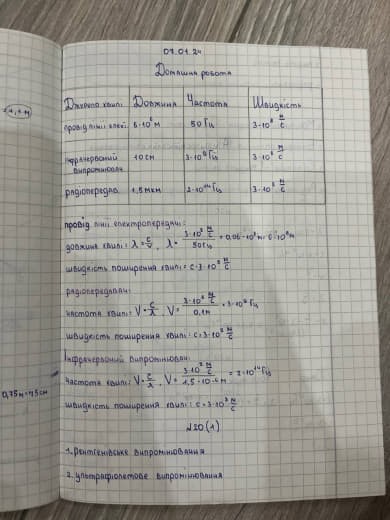 07.01.24
Домашня робота
Джерело хвилі Довжина Частота Швидкість
провід лінії елект. 6·10⁶м 50Гц 3·10⁸ м/с
інфрачервоний випромінювач 10 см 3·10⁹Гц 3·10⁸ м/с
радіопередав. 1,5мкм 2·10¹⁴Гц 3·10⁸ м/с
провід лінії електропередачі:
довжина хвилі: λ=c/ν, λ= 3·10⁸ м/с / 50Гц = 0,06·10⁸м= 6·10⁶м
швидкість поширення хвилі: c=3·10⁸ м/с
радіопередавач:
частота хвилі: V=c/λ, V= 3·10⁸ м/с / 0,1м = 3·10⁹Гц
швидкість поширення хвилі: c=3·10⁸ м/с
Інфрачервоний випромінювач:
частота хвилі: V=c/λ, V= 3·10⁸ м/с / 1,5·10⁻⁶м = 2·10¹⁴Гц
швидкість поширення хвилі: c=3·10⁸ м/с
№20(1)
1. Рентгенівське випромінювання
2. Ультрафіолетове випромінювання
1,1 м
0,75м=75см